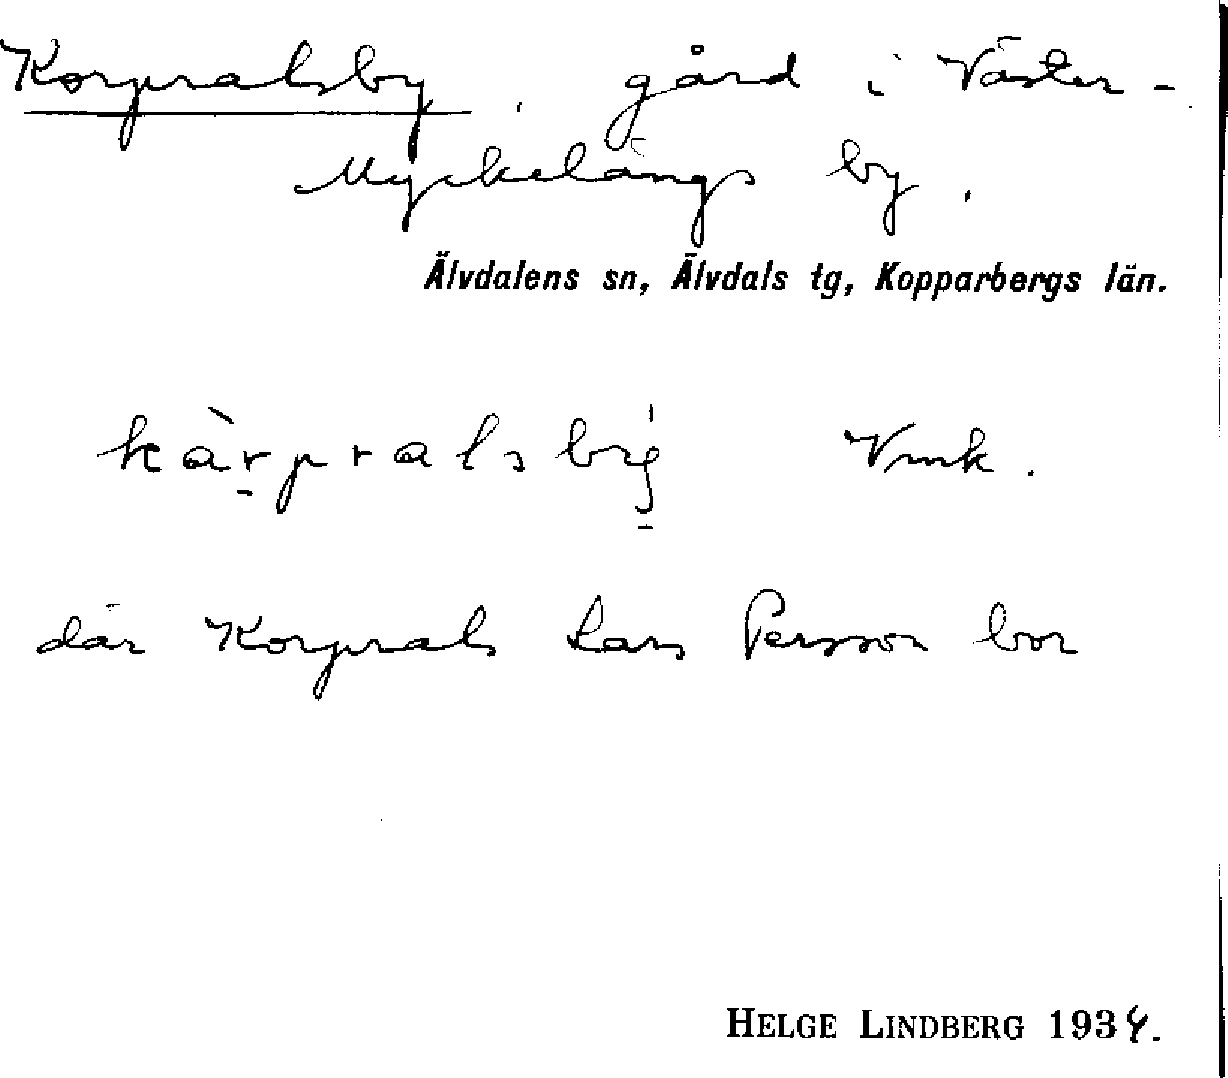 Korpralsby, gård i Väster-
Myckelängs by.
Älvdalens sn, Älvdals tg, Kopparbergs län.
kàrpralsby Vmk.
där Korprals Lars Persson bor
HELGE LINDBERG 1934.